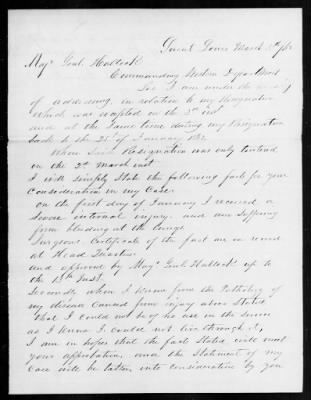 Saint Louis March 5th /62
Maj. Genl. Halleck
Commanding Western Department
Sir I am under the
of addressing, in relation to my resignation
which was accepted on the 3d inst
and at the same time dating my resignation
back to the 21st of January 1862
When Said Resignation was only tendered
on the 2d March inst
I will simply State the following facts for your
Consideration in my Case.
on the first day of January I received a
Severe internal injury. and am suffering
from bleeding at the lungs
Surgeons Certificate of the fact are on record
at Head Quarters.
and approved by Maj. Genl. Halleck up to
the 15th Inst.
Secondly when I knew from the Pathology of
my disease Caused from injury above Stated
that I could not be of no use in the Service
as I knew I could not live through it,
I am in hopes that the facts Stated, will meet
your approbation, and the Statement of my
Case will be taken into consideration by you